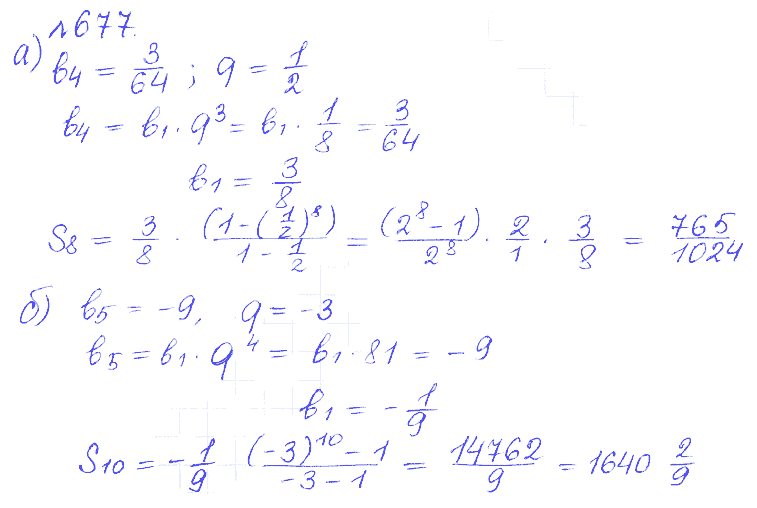 №677.
а) b₄ = 3/64 ; q = 1/2
b₄ = b₁ · q³ = b₁ · 1/8 = 3/64
b₁ = 3/8
S₈ = 3/8 · (1-(1/2)⁸)/(1-1/2) = (2⁸-1)/2⁸ · 2/1 · 3/8 = 765/1024
б) b₅ = -9, q = -3
b₅ = b₁ · q⁴ = b₁ · 81 = -9
b₁ = -1/9
S₁₀ = -1/9 ((-3)¹⁰-1)/(-3-1) = 14762/9 = 1640 2/9